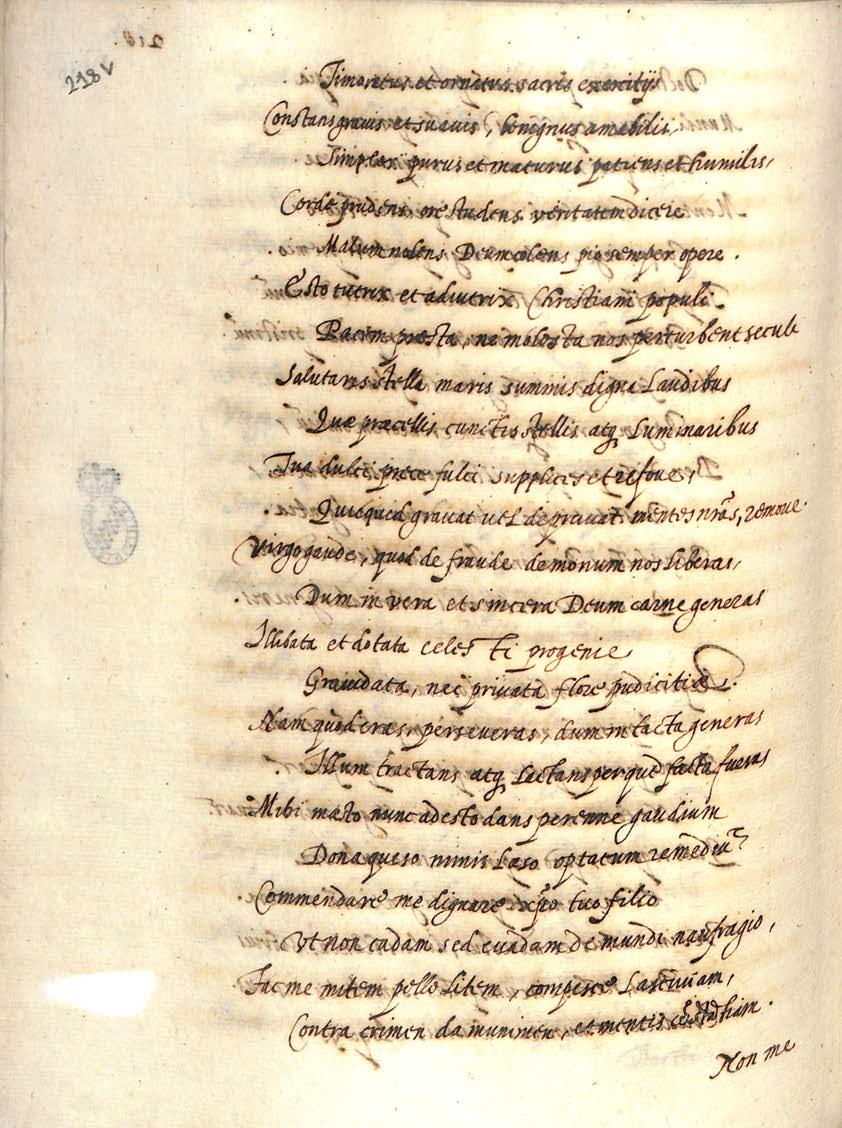 218v
Timoratus et ornatus sacris exercitijs
Constans gravis et suavis, benignus amabilis,
Simplex purus et maturus patiens et humilis,
Corde prudens, ore studens veritatem dicere
Malum nolens Deum colens pio semper opere.
Esto tutrix et adiutrix Christiani populi
Pacem præsta, ne molesta nos perturbent seculi
Salutaris stella maris summis digna Laudibus
Quæ præcellis cunctis stellis atq Luminaribus
Tua dulci prece fulci supplices et refove,
Quicquid gravat vel depravat mentes nrās, remove.
Virgo gaude, quod de fraude demonum nos liberas,
Dum in vera et sincera Deum carne generas
Illibata et dotata celesti progenie
Gravidata, nec privata flore pudicitiæ.
Nam quod eras, perseveras, dum intacta generas
Illum tractans atq Lactans per quē facta fueras
Mihi mæsto nunc adesto dans perenne gaudium
Dona queso nimis Læso optatum remediū
Commendare me dignare xp̄o tuo filio
Ut non cadam sed evadam de mundi naufragio,
Fac me mitem pelle Litem, compesce Lasciviam,
Contra crimen da munimen, et mentis
Non me